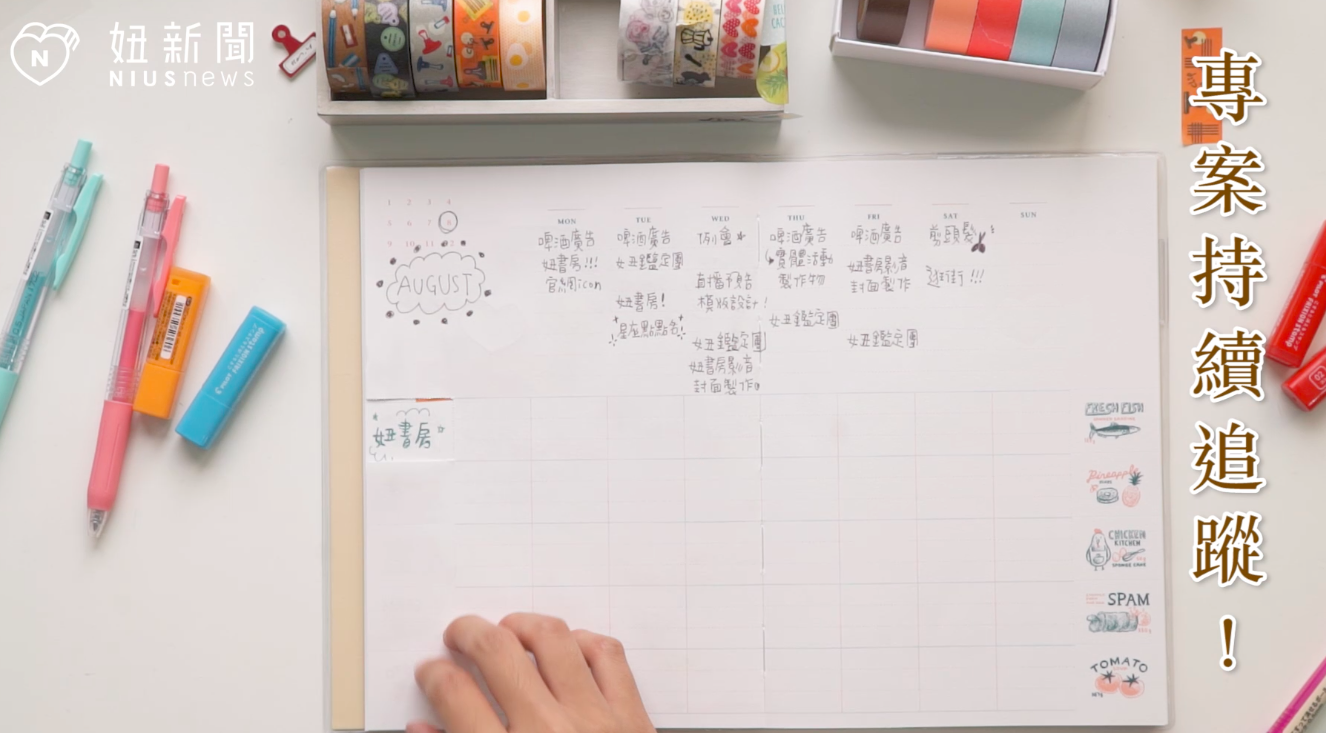 妞新聞
NIUSnews
專案持續追蹤！
1 2 3 4
5 6 7 8
9 10 11 12
AUGUST
MON
啤酒廣告
妞書房!!!
官網icon
TUE
啤酒廣告
女丑鑑定團
妞書房!
星座點點名!
WED
例會
直播預告
模版設計!
女丑鑑定團
妞書房影音
封面製作
THU
啤酒廣告
實體活動
製作物
女丑鑑定團
FRI
啤酒廣告
妞書房影音
封面製作
女丑鑑定團
SAT
剪頭髮
逛街!!!
SUN
妞書房
FRESH FISH
Pineapple
CHICKEN
KITCHEN
SPONGE CAKE
SPAM
TOMATO